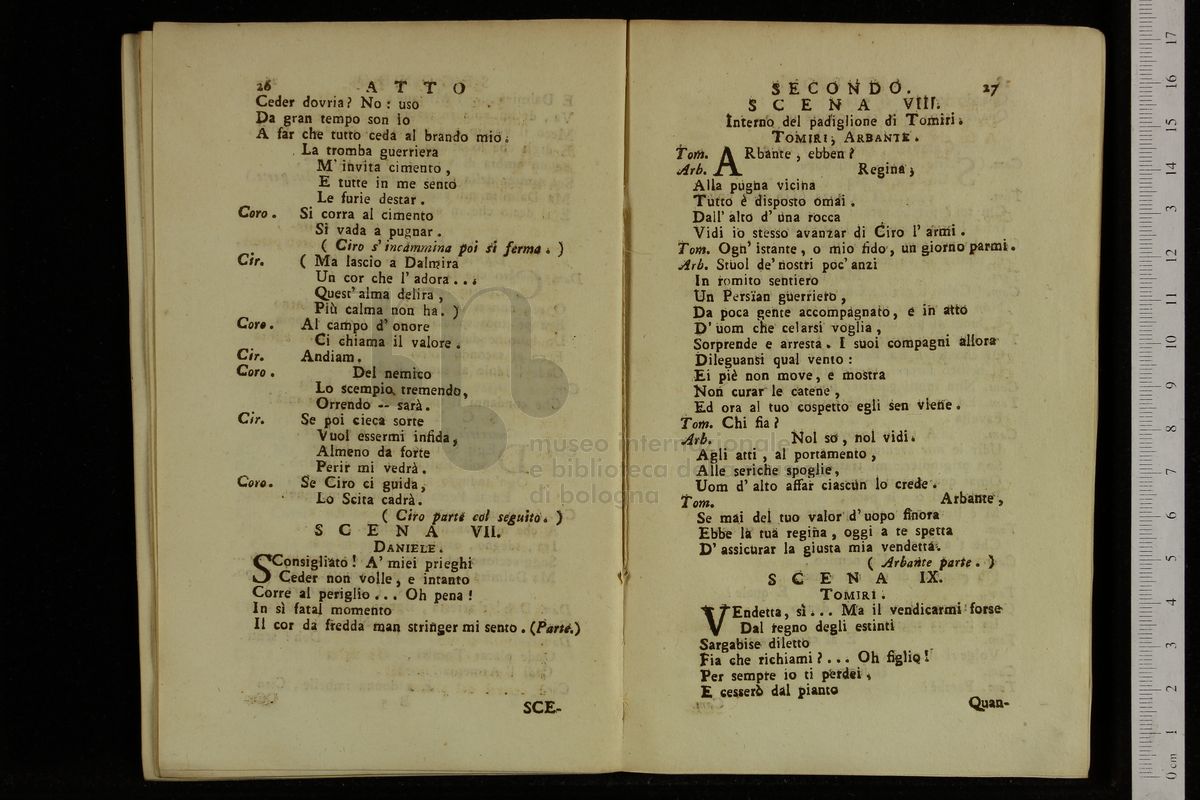 26 ATTO
Ceder dovria? No: uso
Da gran tempo son io
A far che tutto ceda al brando mio.
La tromba guerriera
M' invita cimento,
E tutte in me sento
Le furie destar.
Coro. Si corra al cimento
Si vada a pugnar.
( Ciro s' incammina poi si ferma. )
Cir. ( Ma lascio a Dalmira
Un cor che l' adora...
Quest' alma delira,
Più calma non ha. )
Coro. Al campo d' onore
Ci chiama il valore.
Cir. Andiam.
Coro. Del nemico
Lo scempio tremendo,
Orrendo -- sarà.
Cir. Se poi cieca sorte
Vuol essermi infida,
Almeno da forte
Perir mi vedrà.
Coro. Se Ciro ci guida,
Lo Scita cadrà.
( Ciro parte col seguito. )
SCENA VII.
DANIELE.
SConsigliato! A' miei prieghi
Ceder non volle, e intanto
Corre al periglio... Oh pena!
In sì fatal momento
Il cor da fredda man stringer mi sento. (Parte.)
SCE-
SECONDO. 27
SCENA VIII.
Interno del padiglione di Tomiri.
TOMIRI, ARBANTE.
Tom. ARbante, ebben?
Arb. Regina,
Alla pugna vicina
Tutto è disposto omai.
Dall' alto d' una rocca
Vidi io stesso avanzar di Ciro l' armi.
Tom. Ogn' istante, o mio fido, un giorno parmi.
Arb. Stuol de' nostri poc' anzi
In romito sentiero
Un Persïan guerriero,
Da poca gente accompagnato, e in atto
D' uom che celarsi voglia,
Sorprende e arresta. I suoi compagni allora
Dileguansi qual vento:
Ei piè non move, e mostra
Non curar le catene,
Ed ora al tuo cospetto egli sen viene.
Tom. Chi fia?
Arb. Nol so, nol vidi.
Agli atti, al portamento,
Alle seriche spoglie,
Uom d' alto affar ciascun lo crede.
Tom. Arbante,
Se mai del tuo valor d' uopo finora
Ebbe la tua regina, oggi a te spetta
D' assicurar la giusta mia vendetta.
( Arbante parte. )
SCENA IX.
TOMIRI.
VEndetta, sì... Ma il vendicarmi forse
Dal regno degli estinti
Sargabise diletto
Fia che richiami?... Oh figlio!
Per sempre io ti perdei,
E cesserò dal pianto
Quan-
museo internazionale
e biblioteca della
di bologna